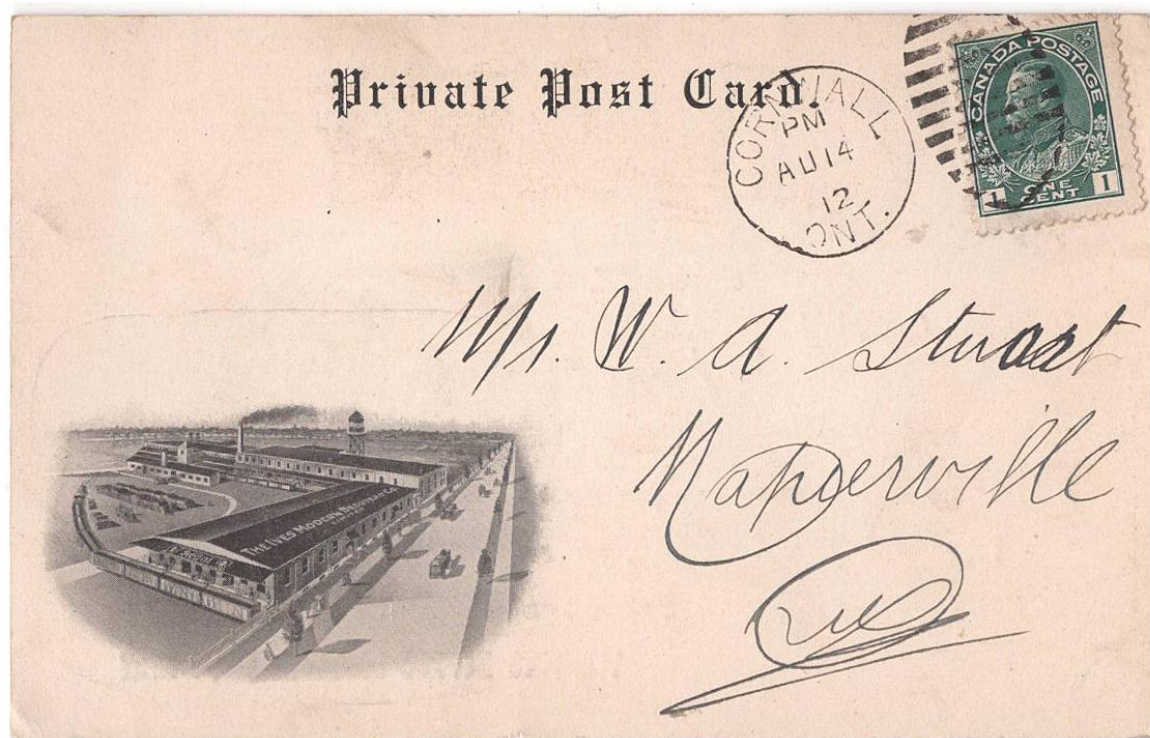 Private Post Card.
CORNWALL
PM
AU 14
12
ONT.
CANADA POSTAGE
1 ONE CENT 1
Mr. W. A. Stuart
Napierville
Que
THE IVES MODERN BEDSTEAD CO.
LIMITED